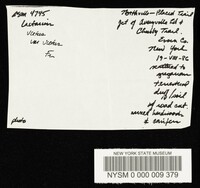 RSM 4745
Lactarius
vietus
var vietus
Fr.
Northville-Placid Trail
jct of Averyville Rd &
Charity Trail.
Essex Co
New York
19-VIII-86
scattered to
gregarious
terrestrial
duff/soil
of road cut
mixed hardwoods
& conifers
photo
NEW YORK STATE MUSEUM
NYSM 0 000 009 379